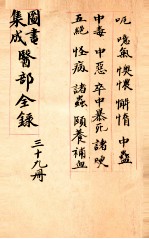 呃 噫氣 懊憹 懈惰 中蠱
中毒 中惡 卒中暴死 諸哽
五絕 怪病 諸蟲 頤養補血
圖書集成醫部全錄
三十九冊